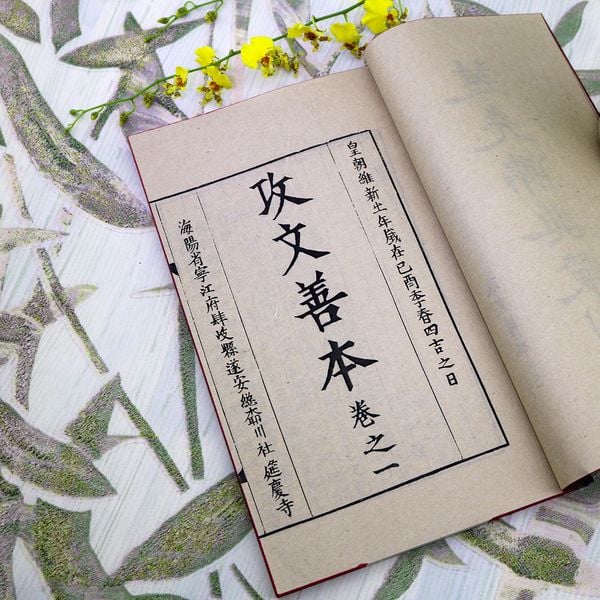 皇朝維新年歲在己酉季春四吉之日
攻文善本 卷之一
海陽省寧江府肆岐縣遂安總川社筵慶寺